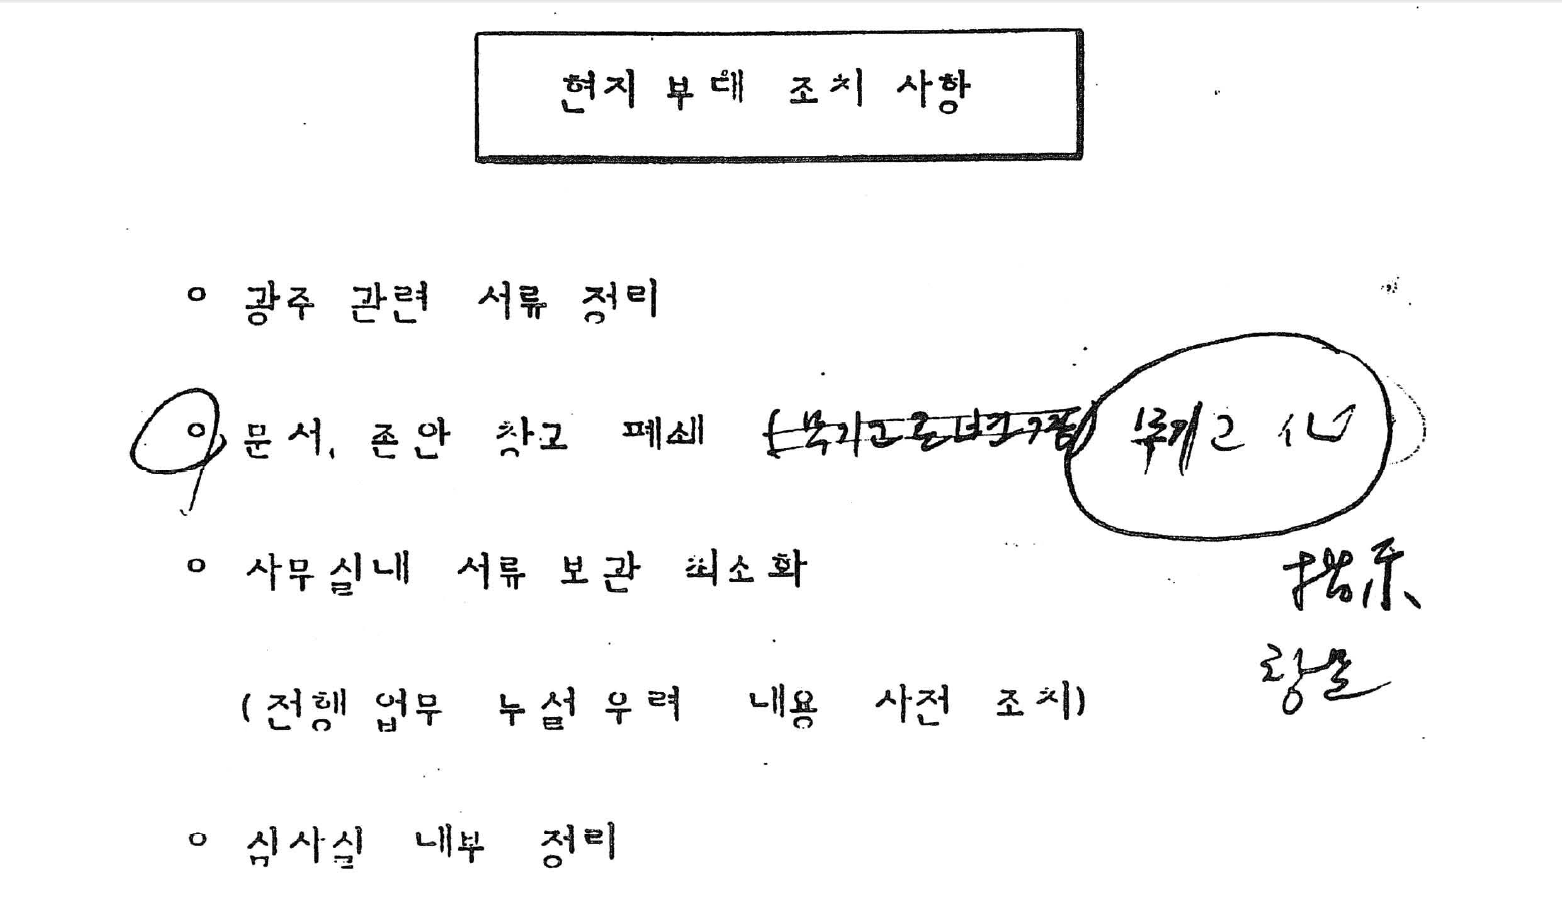 현지 부대 조치 사항
o 광주 관련 서류 정리
o 문서, 존안 창고 폐쇄
o 사무실내 서류 보관 최소화
(전행 업무 누설 우려 내용 사전 조치)
o 심사실 내부 정리